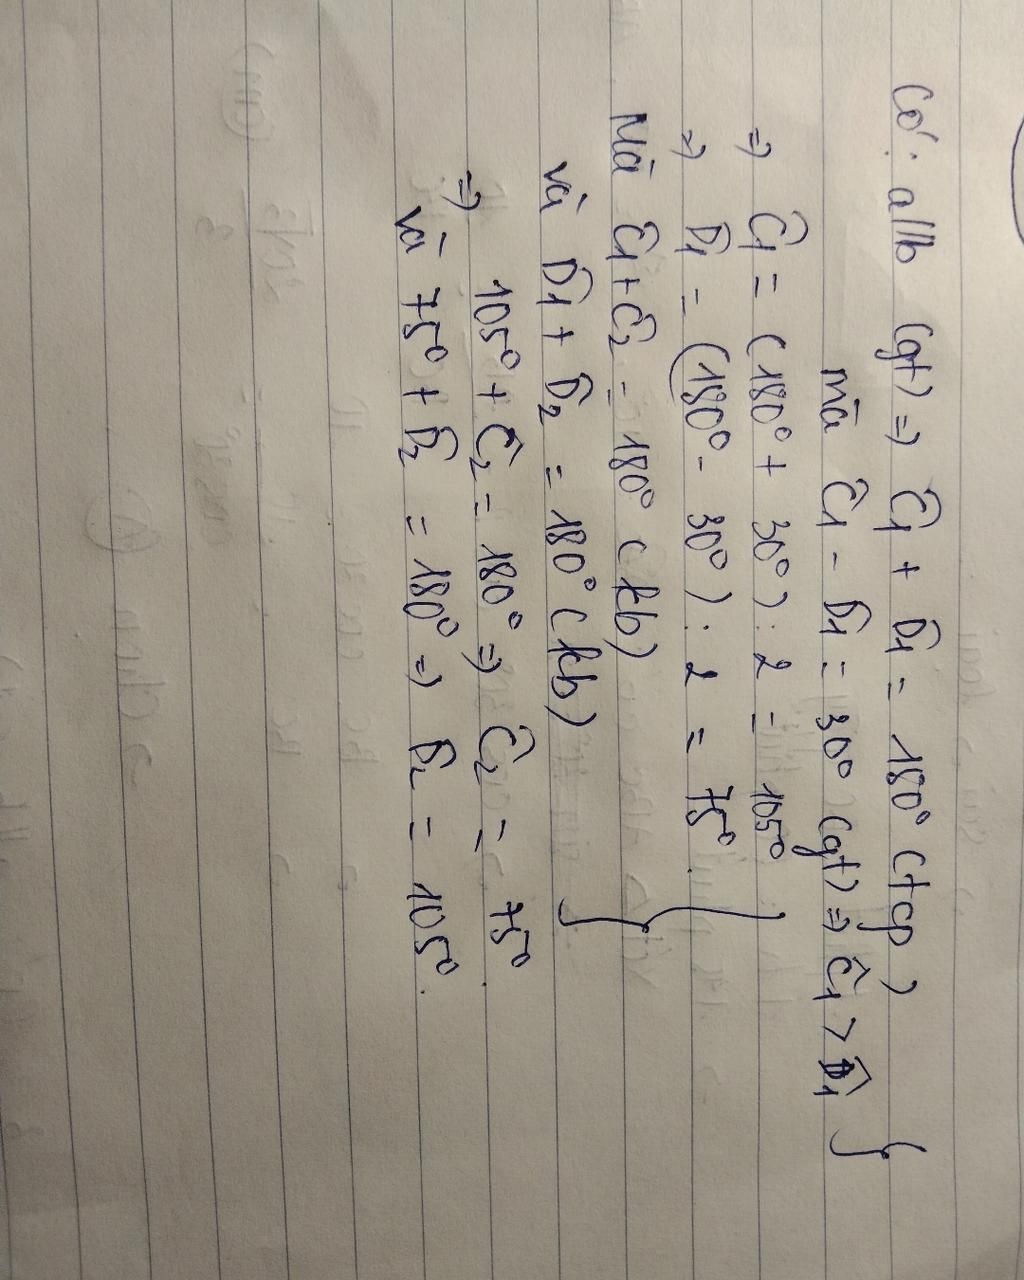 Có: a//b (gt) ⇒ Ĉ₁ + D̂₁ = 180° (tcp)
mà Ĉ₁ - D̂₁ = 30° (gt) ⇒ Ĉ₁ > D̂₁ }
⇒ Ĉ₁ = (180° + 30°) : 2 = 105°
⇒ D̂₁ = (180° - 30°) : 2 = 75°.
Mà Ĉ₁ + Ĉ₂ = 180° (kb)
và D̂₁ + D̂₂ = 180° (kb) }
⇒ 105° + Ĉ₂ = 180° ⇒ Ĉ₂ = 75°.
và 75° + D̂₂ = 180° ⇒ D̂₂ = 105°.